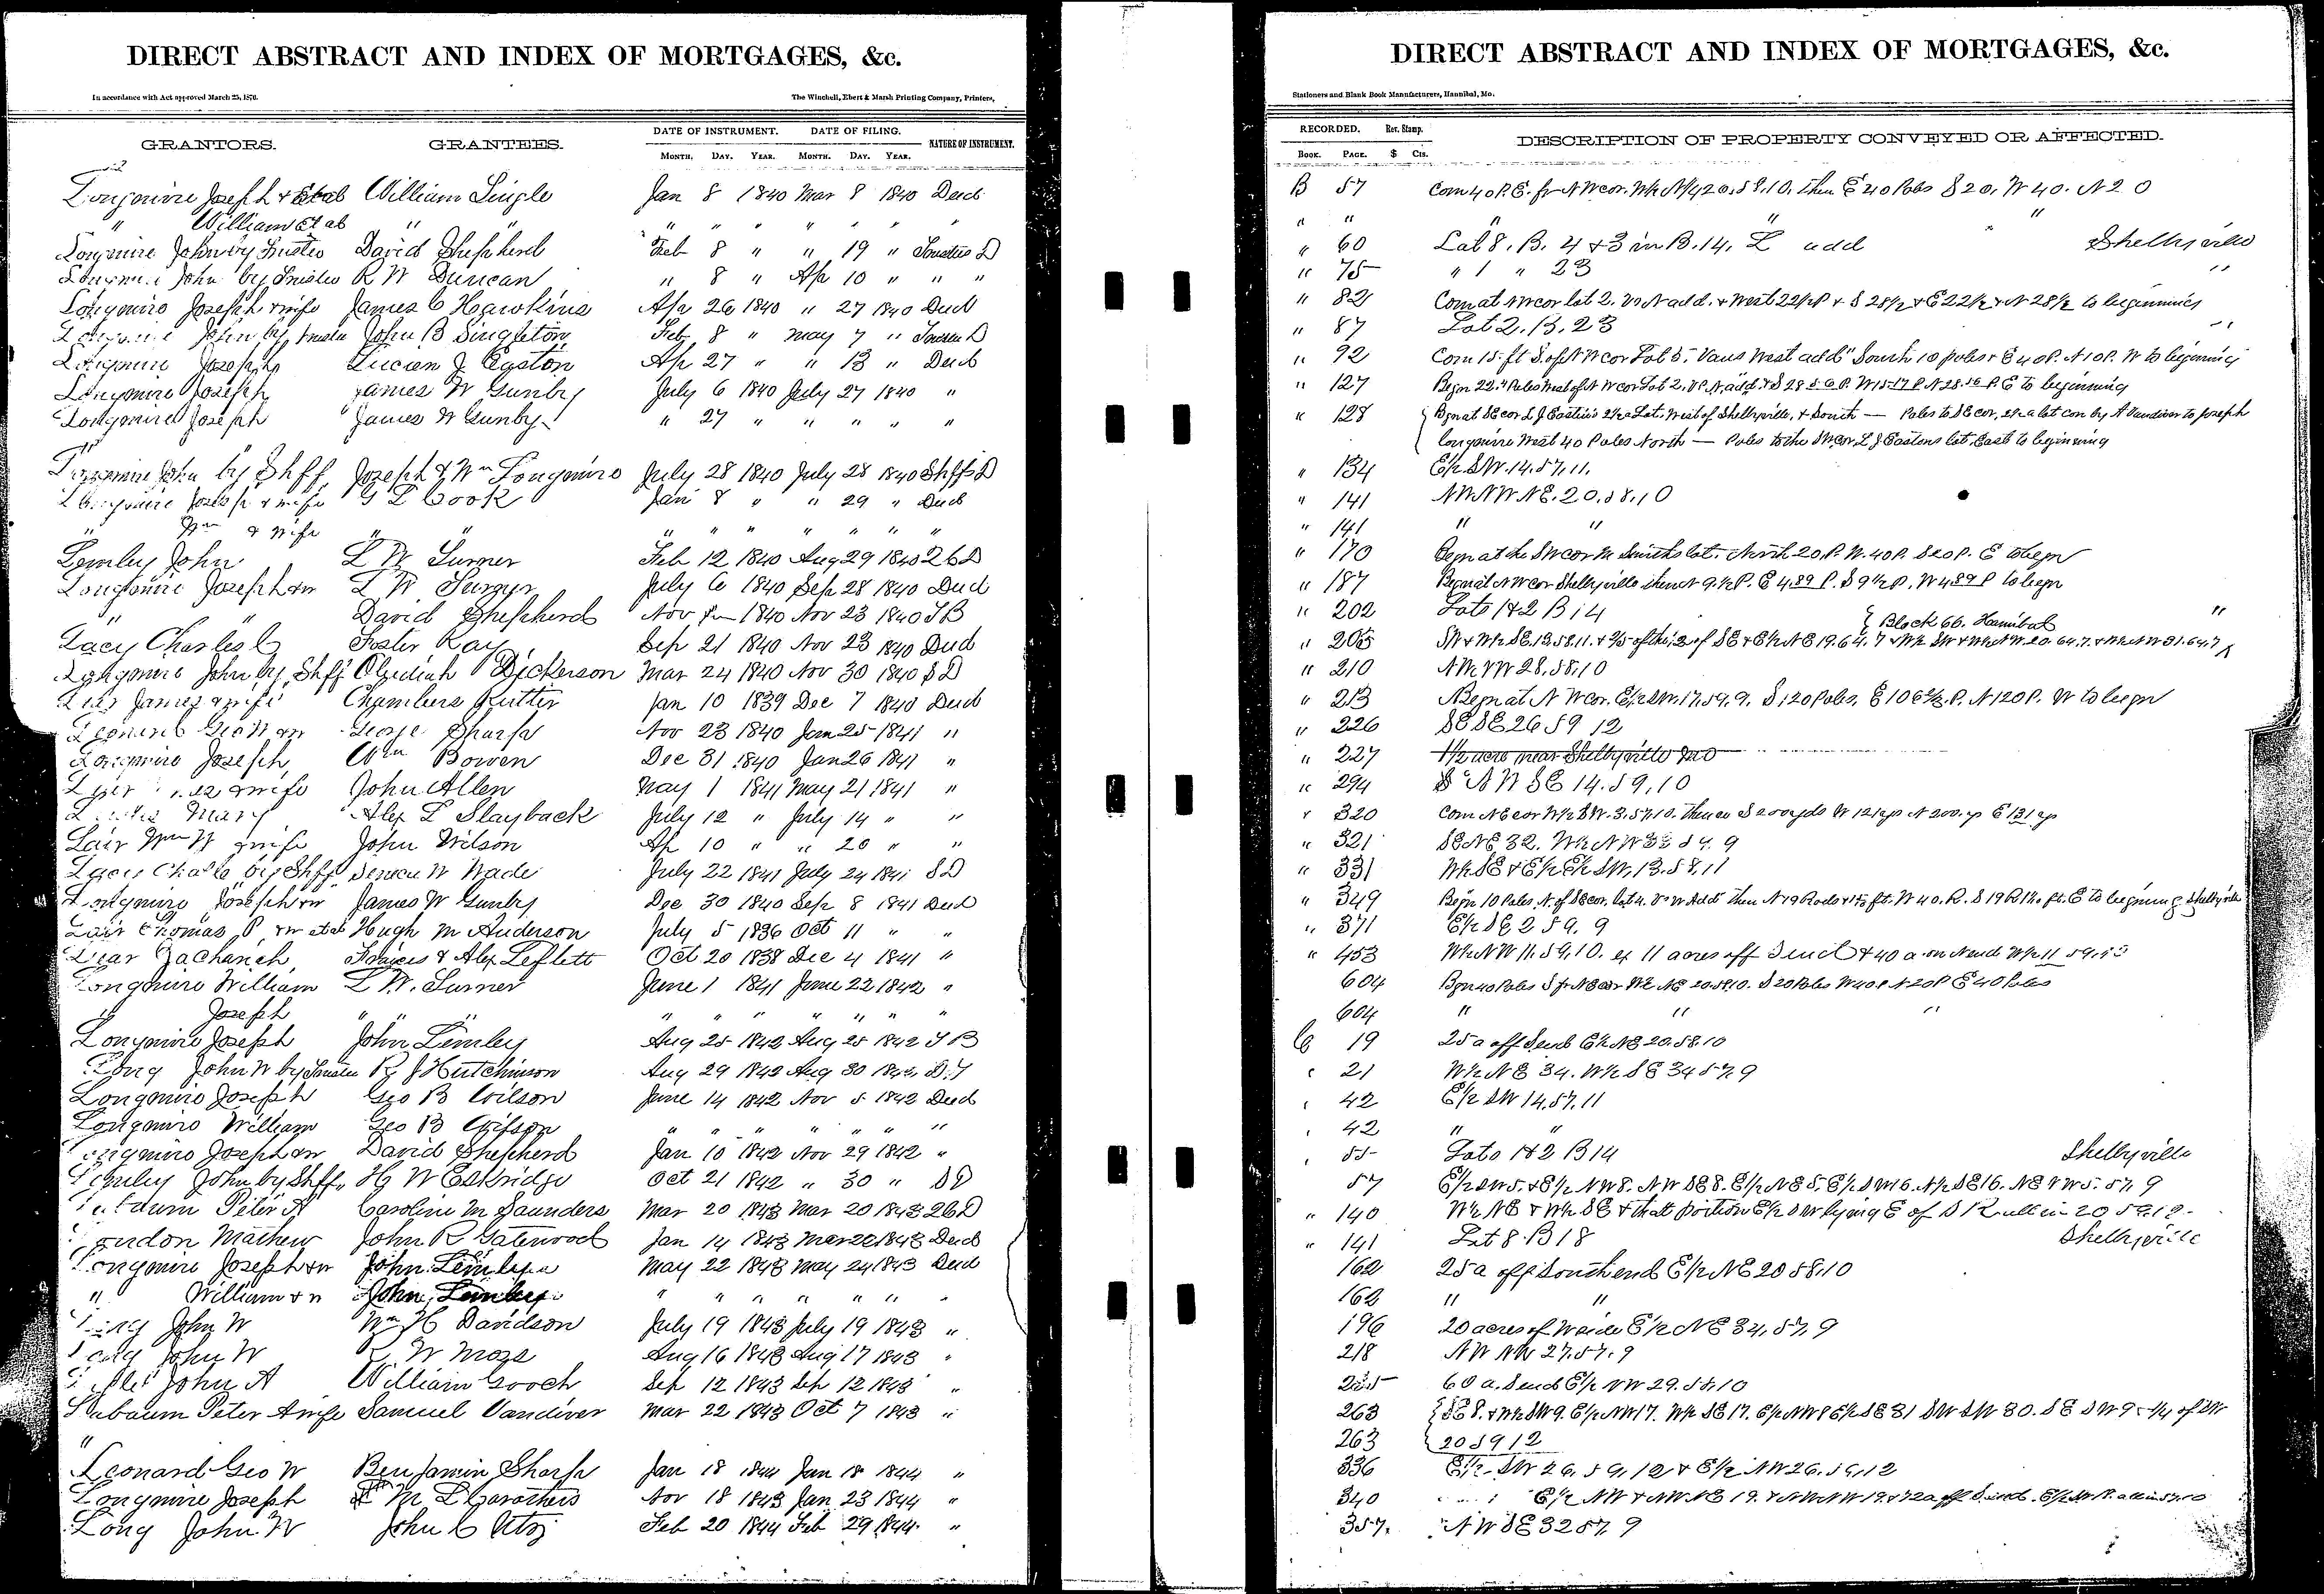 DIRECT ABSTRACT AND INDEX OF MORTGAGES, &c.
In accordance with Act approved March 25, 1870.
The Winchell, Ebert & Marsh Printing Company, Printers,
GRANTORS. GRANTEES. DATE OF INSTRUMENT. DATE OF FILING. NATURE OF INSTRUMENT.
MONTH. DAY. YEAR. MONTH. DAY. YEAR.
Longmire Joseph & Et al William Lingle Jan 8 1840 Mar 8 1840 Deed
" William et al " " " " " " " "
Longmire John by Trustee David Shepherd Feb 8 " " 19 " Trustees D
Longmire John by Trustee R W Duncan " 8 " Ap 10 " " "
Longmire Joseph & wife James C Hawkins Ap 26 1840 " 27 1840 Deed
Longmire John by Trustee John B Singleton Feb 8 " May 7 " Trustee D
Longmire Joseph Lucien J Easton Ap 27 " " 13 " Deed
Longmire Joseph James W Gunby July 6 1840 July 27 1840 "
Longmire Joseph James W Gunby " 27 " " " " "
Longmire John by Shff Joseph & Wm Longmire July 28 1840 July 28 1840 Shffs D
Longmire Joseph & wife G L Cook Jan 8 " " 29 " Deed
" Wm & Wife " " " " " " " "
Lemley John L W Turner Feb 12 1840 Aug 29 1840 2 6 D
Longmire Joseph & w L W Turner July 6 1840 Sep 28 1840 Deed
" " David Shepherd Nov 1840 Nov 23 1840 T B
Lacy Charles C Foster Ray Sep 21 1840 Nov 23 1840 Deed
Longmire John by Shff Obediah Dickerson Mar 24 1840 Nov 30 1840 S D
James & wife Chambers Rutter Jan 10 1839 Dec 7 1840 Deed
Leonard Geo W George Sharp Nov 23 1840 Jan 25 1841 "
Longmire Joseph Wm Bowen Dec 31 1840 Jan 26 1841 "
& wife John Allen May 1 1841 May 21 1841 "
Mary Alex L Slayback July 12 " July 14 " "
Lair Wm W & wife John Wilson Ap 10 " " 20 " "
by Shff W Wade July 22 1841 July 24 1841 S D
Longmire Joseph & w James W Gunby Dec 30 1840 Sep 8 1841 Deed
Lair Thomas P & w et al Hugh M Anderson July 5 1836 Oct 11 " "
Lear Zachariah Francis & Alex Leflett Oct 20 1838 Dec 4 1841 "
Longmire William L W. Turner June 1 1841 June 22 1842 "
" Joseph " " " " " " " "
Longmire Joseph John Lemley Aug 25 1842 Aug 25 1842 T B
Long John W by Trustee R J Hutchinson Aug 29 1842 Aug 30 1842 D. T
Longmire Joseph Geo B Wilson June 14 1842 Nov 5 1842 Deed
Longmire William Geo B Wilson " " " " " " "
Longmire Joseph & w David Shepherd Jan 10 1842 Nov 29 1842 "
Lemley John by Shff H W Eskridge Oct 21 1842 " 30 " S D
Peter A Caroline M Saunders Mar 20 1843 Mar 20 1843 2 6 D
Loudon Mathew John R Gatewood Jan 14 1843 Mar 22 1843 Deed
Longmire Joseph & w John Lemley May 22 1843 May 24 1843 Deed
" William & w John Lemley " " " " " " "
Long John W Wm H Davidson July 19 1843 July 19 1843 "
Long John W R W Moss Aug 16 1843 Aug 17 1843 "
John A William Gooch Sep 12 1843 Sep 12 1843 "
Peter A & wife Samuel Vandiver Mar 22 1843 Oct 7 1843 "
"
Leonard Geo W Benjamin Sharp Jan 18 1844 Jan 18 1844 "
Longmire Joseph M L Carothers Nov 18 1843 Jan 23 1844 "
Long John W John C Utz Feb 20 1844 Feb 29 1844 "
DIRECT ABSTRACT AND INDEX OF MORTGAGES, &c.
Stationers and Blank Book Manufacturers, Hannibal, Mo.
RECORDED. Rev. Stamp. DESCRIPTION OF PROPERTY CONVEYED OR AFFECTED.
BOOK. PAGE. $ Cts.
B 57 Com 40 P. E. fr N W cor. W½ N½ 20. 58. 10. then E 40 Poles S 20. W 40. N 20
" " " " "
" 60 Lot 8. B. 4 & 3 in B. 14. L add Shelbyville
" 75 " 1 " 23 "
" 82 Com at NW cor lot 2. V's N add. & West 22½ P & S 28½ & E 22½ & N 28½ to beginning
" 87 Lot 2. B. 23 "
" 92 Com 15 ft S. of N W cor Lot 5. Vans West add South 10 poles & E 40 P. N 10 P. W to beginning
" 127 Begn 22. Poles West of N W cor Lot 2. N add. & S 28 56 P. W 15 17 P. N 28. 56 P. E to beginning
" 128 Bgn at SE cor L J Easton's 2½ a Lot. West of Shelbyville, & South — Poles to SE cor, 2½ a lot con by A Vandiver to Joseph
Longmire West 40 Poles North — Poles to the SW cor. L J Eastons lot. East to beginning
" 134 E½ SW. 14. 57. 11.
" 141 NW NW NE. 20. 58. 10
" 141 " "
" 170 Begn at the SW cor M Smiths lot. North 20 P. W. 40 P. S 20 P. E to begn
" 187 Begn at N W cor Shelbyville then N 9½ P. E 4.89 P. S 9½ P. W 4.89 P to begn
" 202 Lots 1 & 2 B 14 "
{ Block 66. Hannibal
" 205 SW & W½ SE. 13. 58. 11. & of SE & E½ NE 19. 64. 7 & W½ SW & W½ NW 20. 64. 7. & W½ NW 31. 64. 7
" 210 28. 58. 10
" 213 Begn at N W Cor. E½ SW. 17. 59. 9. S 120 Poles. E 106⅔ P. N 120 P. W to begn
" 226 SE SE 26 59 12
" 227 1½ acre near Shelbyville Mo
" 294 N W SE 14. 59. 10
" 320 Com NE cor W½ SW. 3. 57. 10.
" 321 SE NE 32. W½ NW 33 59. 9
" 331 W½ SE & E½ E½ SW. 13. 58. 11
" 349 Begn 10 Poles. N. of SE cor. lot 4. V's W Add. Then N 19 Rods W 40. R. S 19 R E to beginning Shelbyville
" 371 E½ SE 2 59. 9
" 453 W½ NW 11. 59. 10. ex 11 acres off S end & 40 a on N end W½ 11 59. 10
604 Bgn 40 Poles S fr NE cor W½ NE 20. 58. 10. S 20 Poles W 40 P. N 20 P E 40 Poles
604 " " "
C 19 25 a off S end E½ NE 20. 58. 10
" 21 W½ NE 34. W½ SE 34 57. 9
" 42 E½ SW 14. 57. 11
" 42 " "
" 55 Lots 1 & 2 B 14 Shelbyville
57 E½ SW 5. & E½ NW 8. NW SE 8. E½ NE 5. E½ SW 16. N½ SE 16. 57. 9
" 140 W½ NE & W½ SE & that portion E½ SW lying E of S R all in 20 59. 12
" 141 Lot 8. B 18 Shelbyville
162 25 a off South end E½ NE 20 58. 10
162 " "
196 20 acres of W side E½ NE 34. 57. 9
218 NW NW 27. 57. 9
60 a. S end E½ NW 29. 58. 10
263 SE 8. & W½ SW 9. E½ NW 17. W½ SE 17. SE 31 SW SW 30. SE SW 9
263 20 59 12
336 E½ SW 26. 59. 12 & E½ NW 26. 59. 12
340 E½ NW & NW NE 19.
357. NW SE 32 57. 9